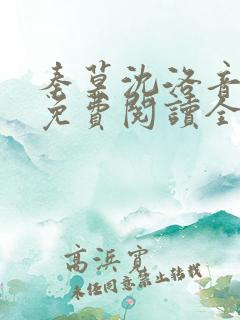 秦草沈洛音
免費閱讀全
高浜寬
未经同意禁止转载